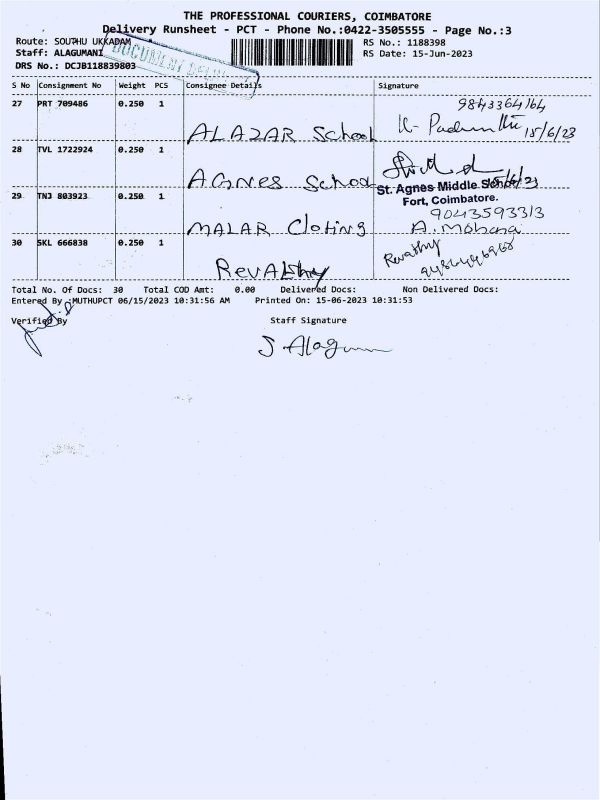 THE PROFESSIONAL COURIERS, COIMBATORE
Delivery Runsheet - PCT - Phone No.:0422-3505555 - Page No.:3
Route: SOUTHU UKKADAM RS No.: 1188398
Staff: ALAGUMANI RS Date: 15-Jun-2023
DRS No.: DCJB118839803
DOCUMENT
S No Consignment No Weight PCS Consignee Details Signature
27 PRT 709486 0.250 1 9843364164
ALAZAR School 15/6/23
28 TVL 1722924 0.250 1
AGNES School St. Agnes Middle School
Fort, Coimbatore.
29 TNJ 803923 0.250 1 9043593313
MALAR Cloting A. Mohana
30 SKL 666838 0.250 1 Revathy
Total No. Of Docs: 30 Total COD Amt: 0.00 Delivered Docs: Non Delivered Docs:
Entered By :MUTHUPCT 06/15/2023 10:31:56 AM Printed On: 15-06-2023 10:31:53
Verified By Staff Signature